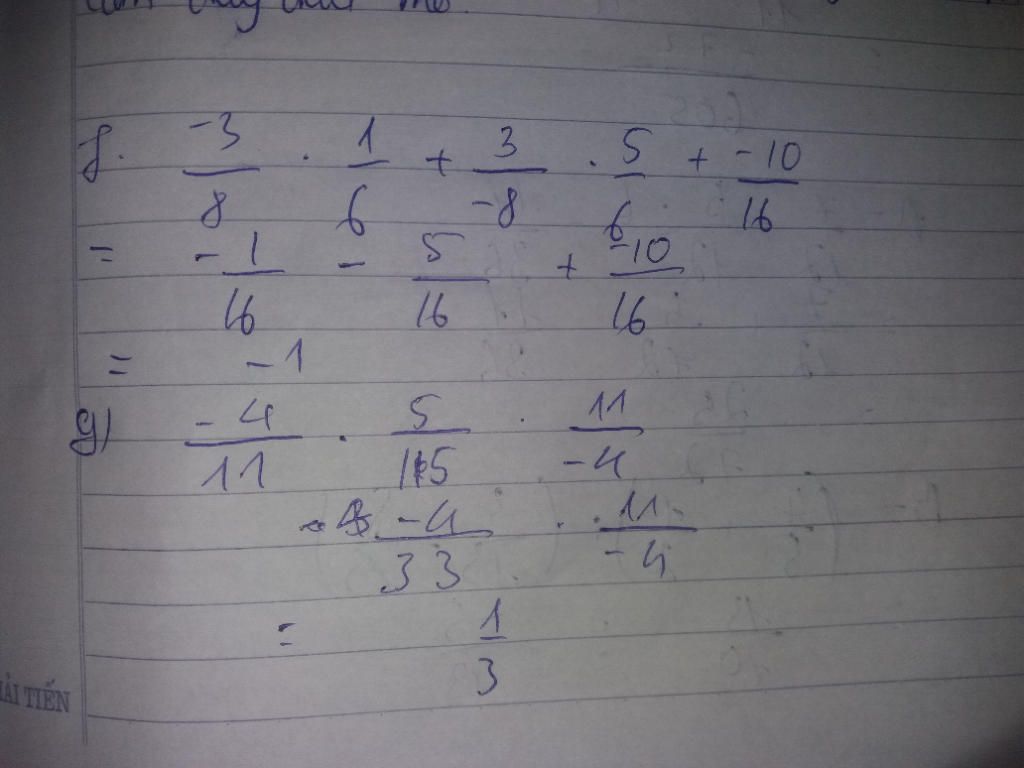 f. -3/8 . 1/6 + 3/-8 . 5/6 + -10/16
= -1/16 - 5/16 + -10/16
= -1
g) -4/11 . 5/15 . 11/-4
-4/33 . 11/-4
= 1/3
ẢI TIẾN